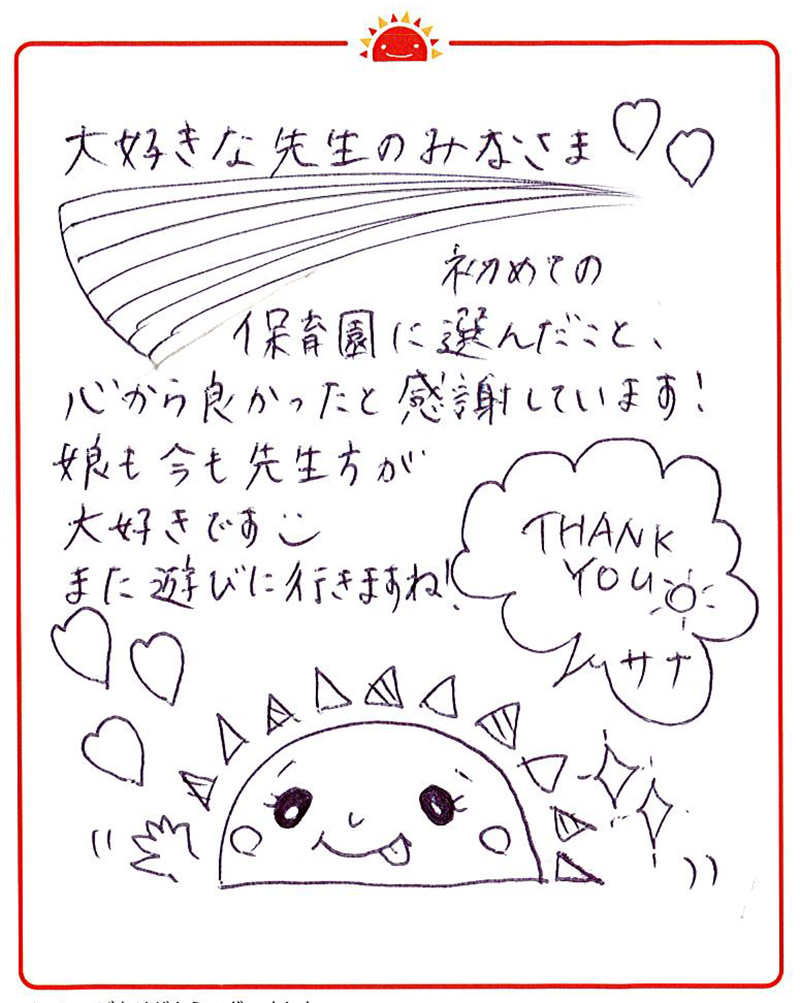 大好きな先生のみなさま
初めての
保育園に選んだこと、
心から良かったと感謝しています!
娘も今も先生方が
大好きです
また遊びに行きますね!
THANK
YOU
サナ